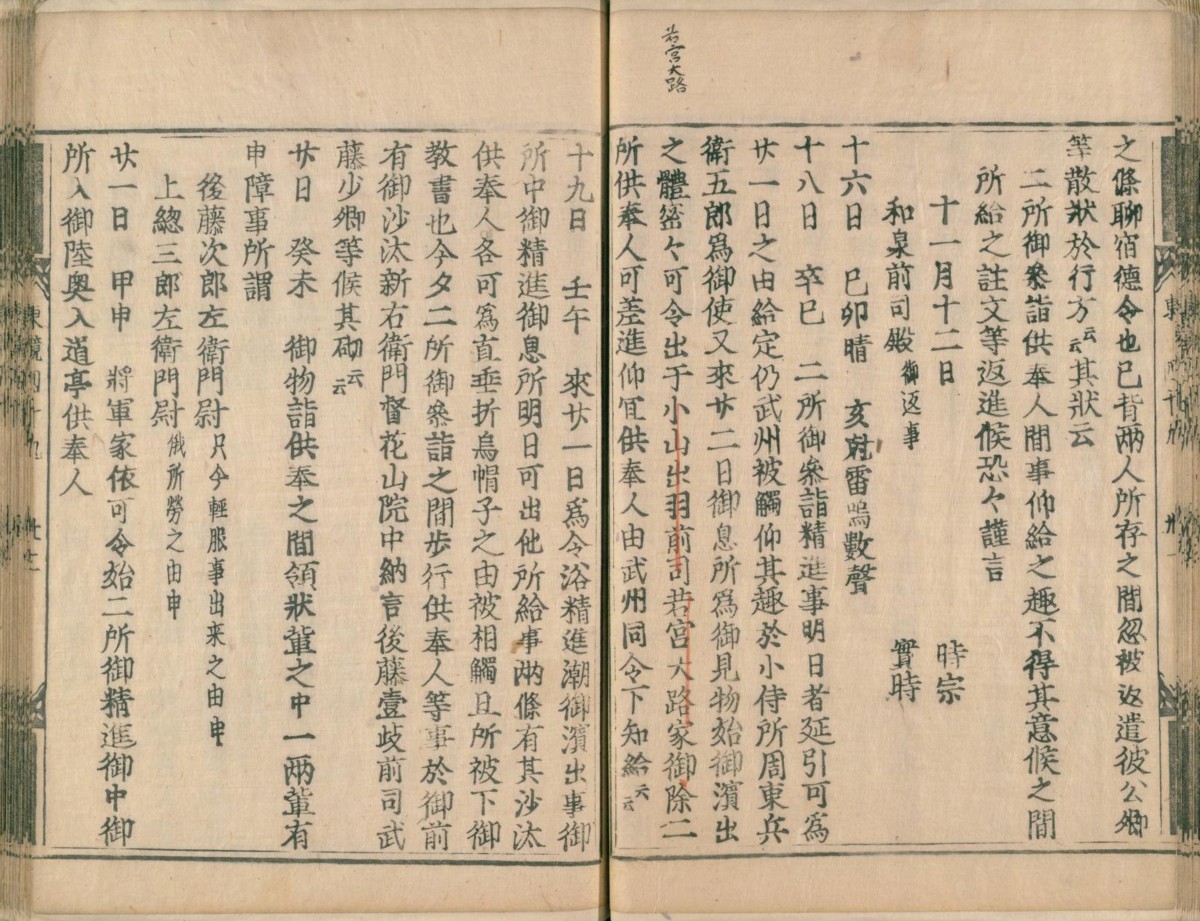 若宮大路
之條聊宿德令也已背兩人所存之間忽被返遣彼公卿
等散狀於行方云云其狀云
二所御參詣供奉人間事仰給之趣不得其意候之間
所給之註文等返進候恐々謹言
十一月十二日 時宗
實時
和泉前司殿御返事
十六日 己卯晴 亥尅雷鳴數聲
十八日 辛巳 二所御參詣精進事明日者延引可爲
廿一日之由給定仍武州被觸仰其趣於小侍所周東兵
衛五郎爲御使又來廿二日御息所爲御見物始御濱出
之體密々可令出于小山出羽前司若宮大路家御除二
所供奉人可差進仰冝供奉人由武州同令下知給云云
十九日 壬午 來廿一日爲令浴精進潮御濱出事御
所中御精進御息所明日可出他所給事兩條有其沙汰
供奉人各可爲直垂折烏帽子之由被相觸且所被下御
教書也今夕二所御參詣之間步行供奉人等事於御前
有御沙汰新右衛門督花山院中納言後藤壹歧前司武
藤少卿等候其砌云云
廿日 癸未 御物詣供奉之間領狀輩之中一兩輩有
申障事所謂
後藤次郎左衛門尉只今輕服事出来之由申
上總三郎左衛門尉俄所勞之由申
廿一日 甲申 將軍家依可令始二所御精進御中御
所入御陸奥入道亭供奉人